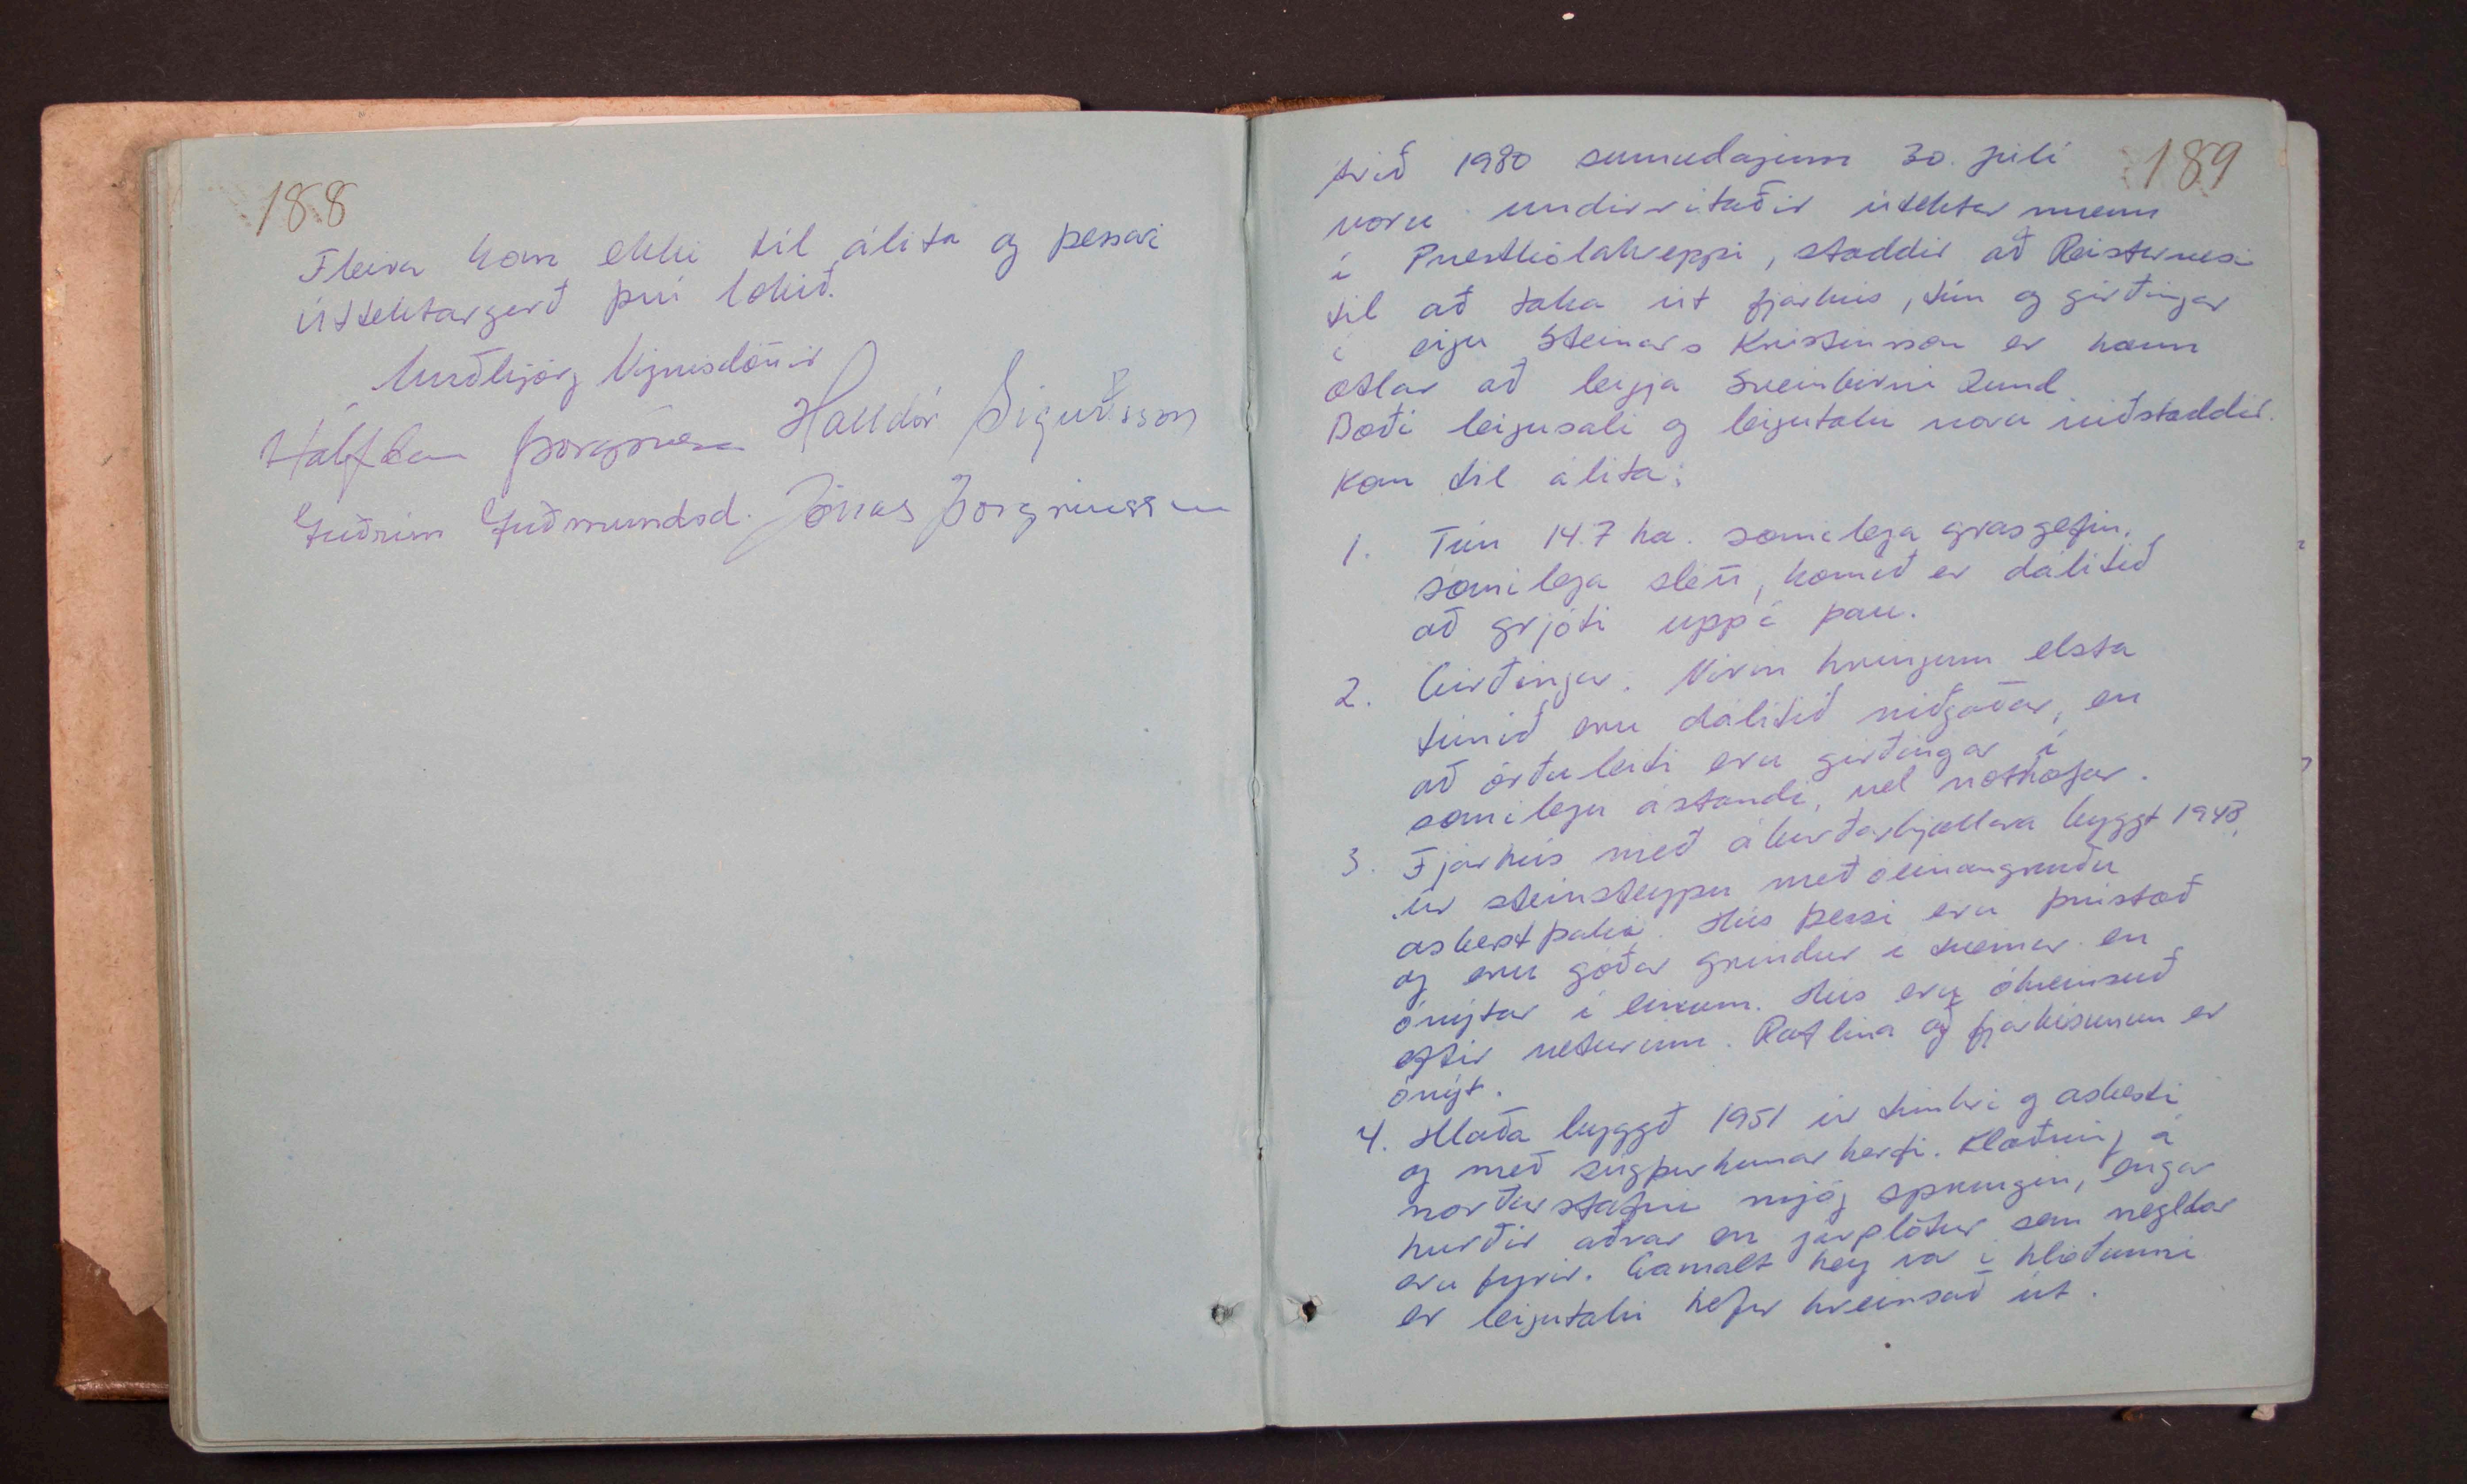 188
Fleira kom ekki til álita og þessari
úttektargerð því lokið.
Auðbjörg Vignisdóttir
Hálfdan Þorgrímsson Halldór Sigurðsson
Guðrún Guðmundsd. Jónas Þorgrímsson
189
Árið 1980 sunnudaginn 30. júlí
voru undirritaðir úttektarmenn
í Presthólahreppi, staddir að Reistarnesi
til að taka út fjárhús, tún og girðingar
í eigu Steinars Kristinssonar er hann
ætlar að leigja Sveinbirni Lund
Bæði leigusali og leigutaki voru viðstaddir.
Kom til álita:
1. Tún 14.7 ha. sæmilega grasgefin,
sæmilega slétt, komið er dálítið
að grjóti uppí þau.
2. Girðingar. Vírar kringum elsta
túnið eru dálítið ryðgaðar, en
að öðru leiti eru girðingar í
sæmilegu ástandi, vel nothæfar.
3. Fjárhús með áburðarkjallara byggt 1948,
úr steinsteypu með óeinangruðu
asbestþaki. Hús þessi eru þrístæð
og eru góðar grindur í tveimur en
ónýtar í einum. Hús eru óhreinsuð
eftir veturinn. Raflína að fjárhúsunum er
ónýt.
4. Hlaða byggð 1951 úr timbri og asbesti
og með súgþurkunarkerfi. Klæðning á
norðurstafni mjög sprungin, engar
hurðir aðrar en járplötur sem negldar
eru fyrir. Gamalt hey var í hlöðunni
er leigutaki hefur hreinsað út.